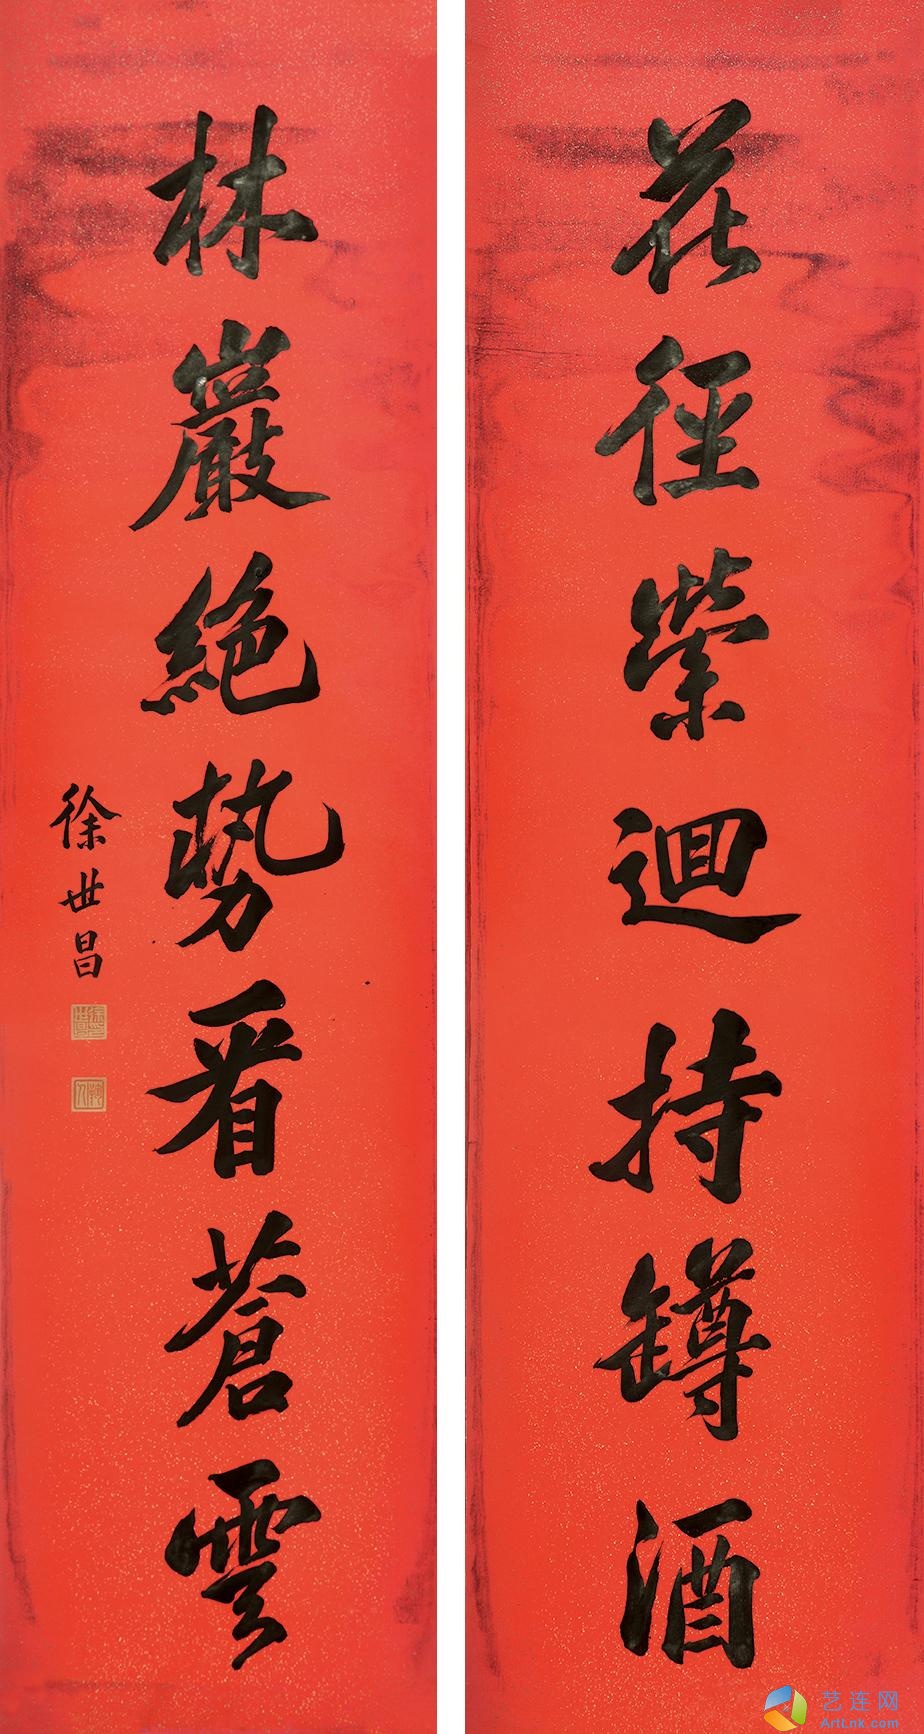 花徑縈迴持罇酒
林巖絕勢看蒼雲
徐世昌
艺连网
ArtLnk.com